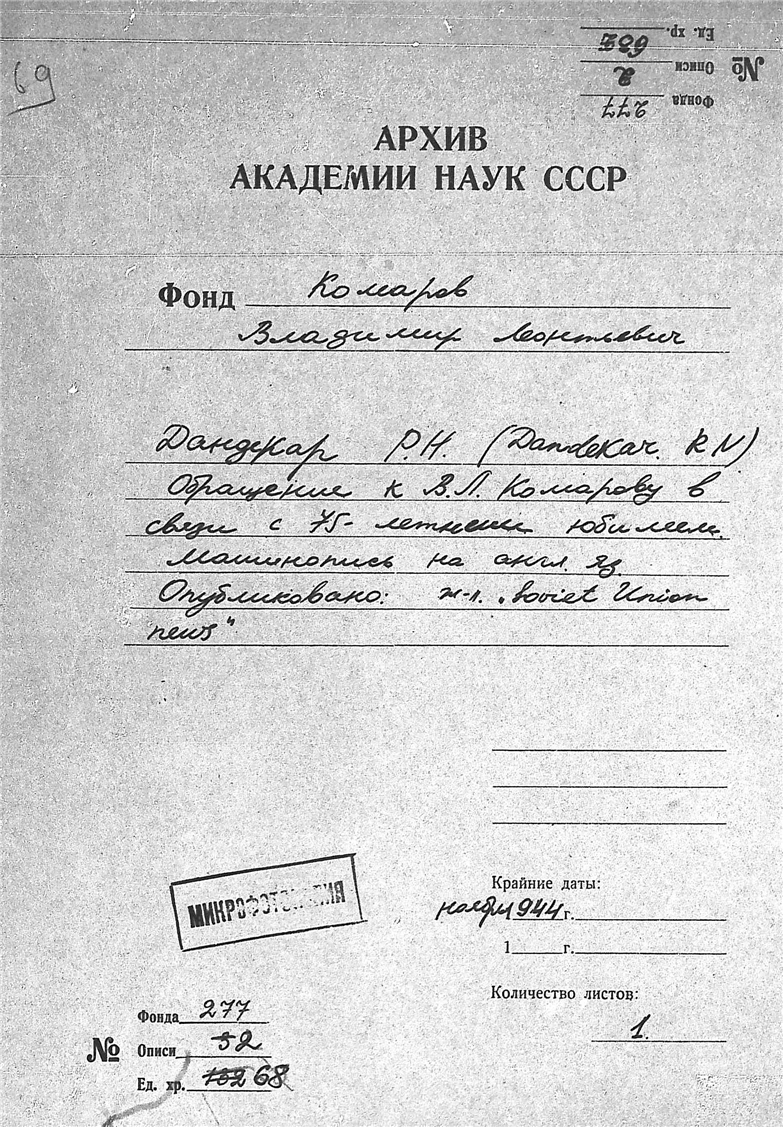 69
Ед. хр.
Описи 2
№
Фонда 277
АРХИВ
АКАДЕМИИ НАУК СССР
Фонд Комаров
Владимир Леонтьевич
Дандекар Р.Н. (Dandekar R N)
Обращение к В.Л. Комарову в
связи с 75-летним юбилеем.
Машинопись на англ яз
Опубликовано: ж-л. „Soviet Union
news"
МИКРОФОТОКОПИЯ
Крайние даты:
ноябрь 1944 г.
1 г.
Количество листов:
1.
Фонда 277
№ Описи 2
Ед. хр. 68